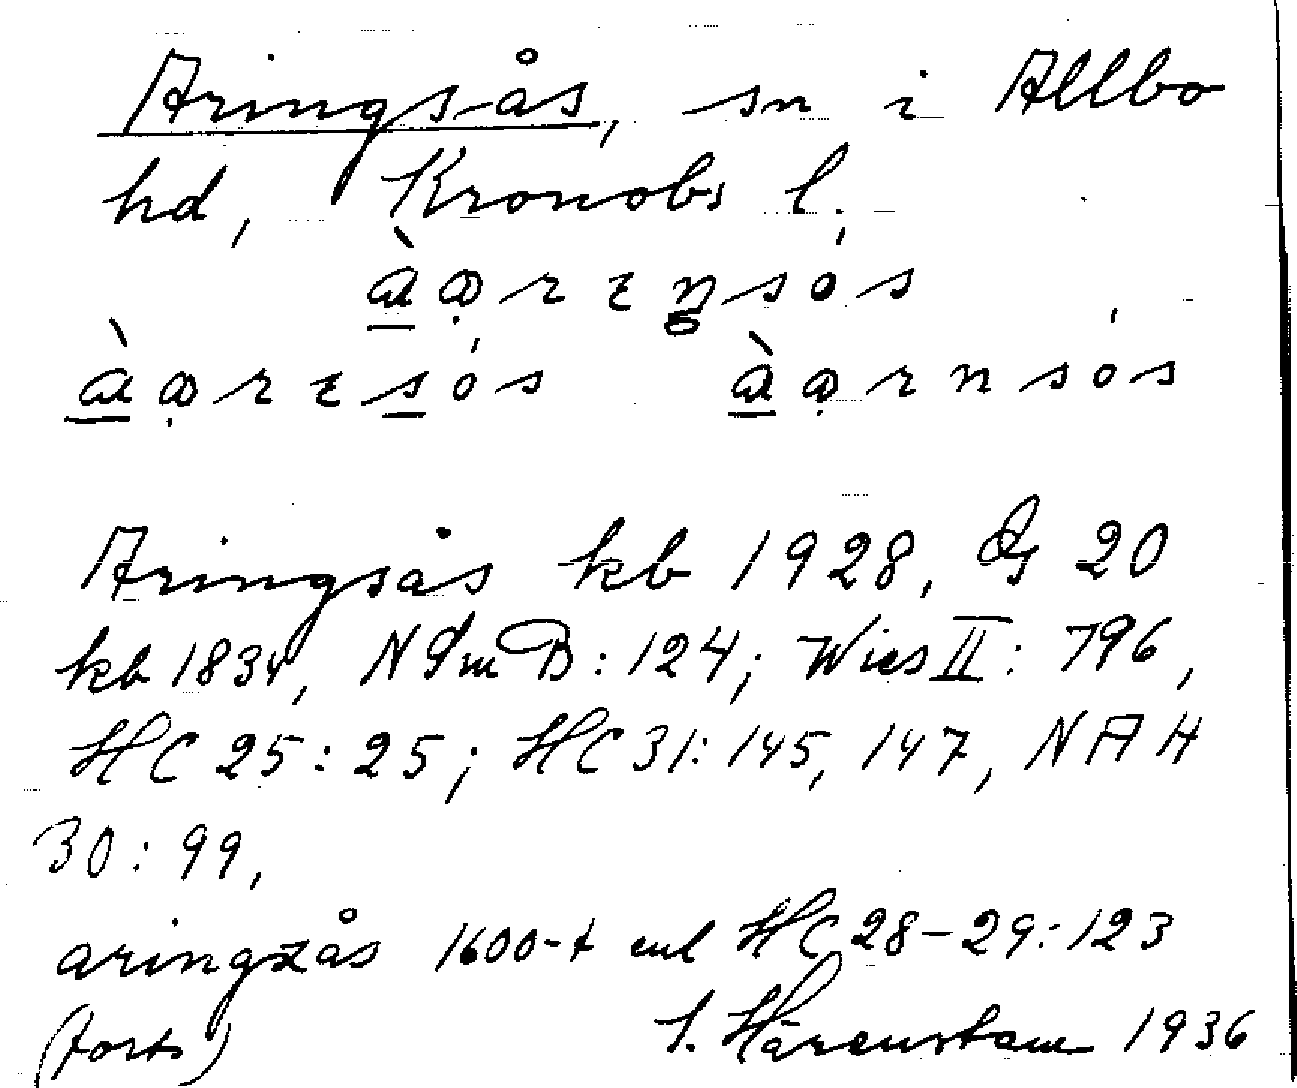 Aringsås, sn i Allbo
hd, Kronobs l.
Aringsås kb 1928, Gs 20
kb 1834, NdmB: 124; Wies II: 796,
HC 25: 25; HC 31: 145, 147, NAH
30: 99,
aringzås 1600-t enl HC 28-29: 123
(forts) S. Härenstam 1936